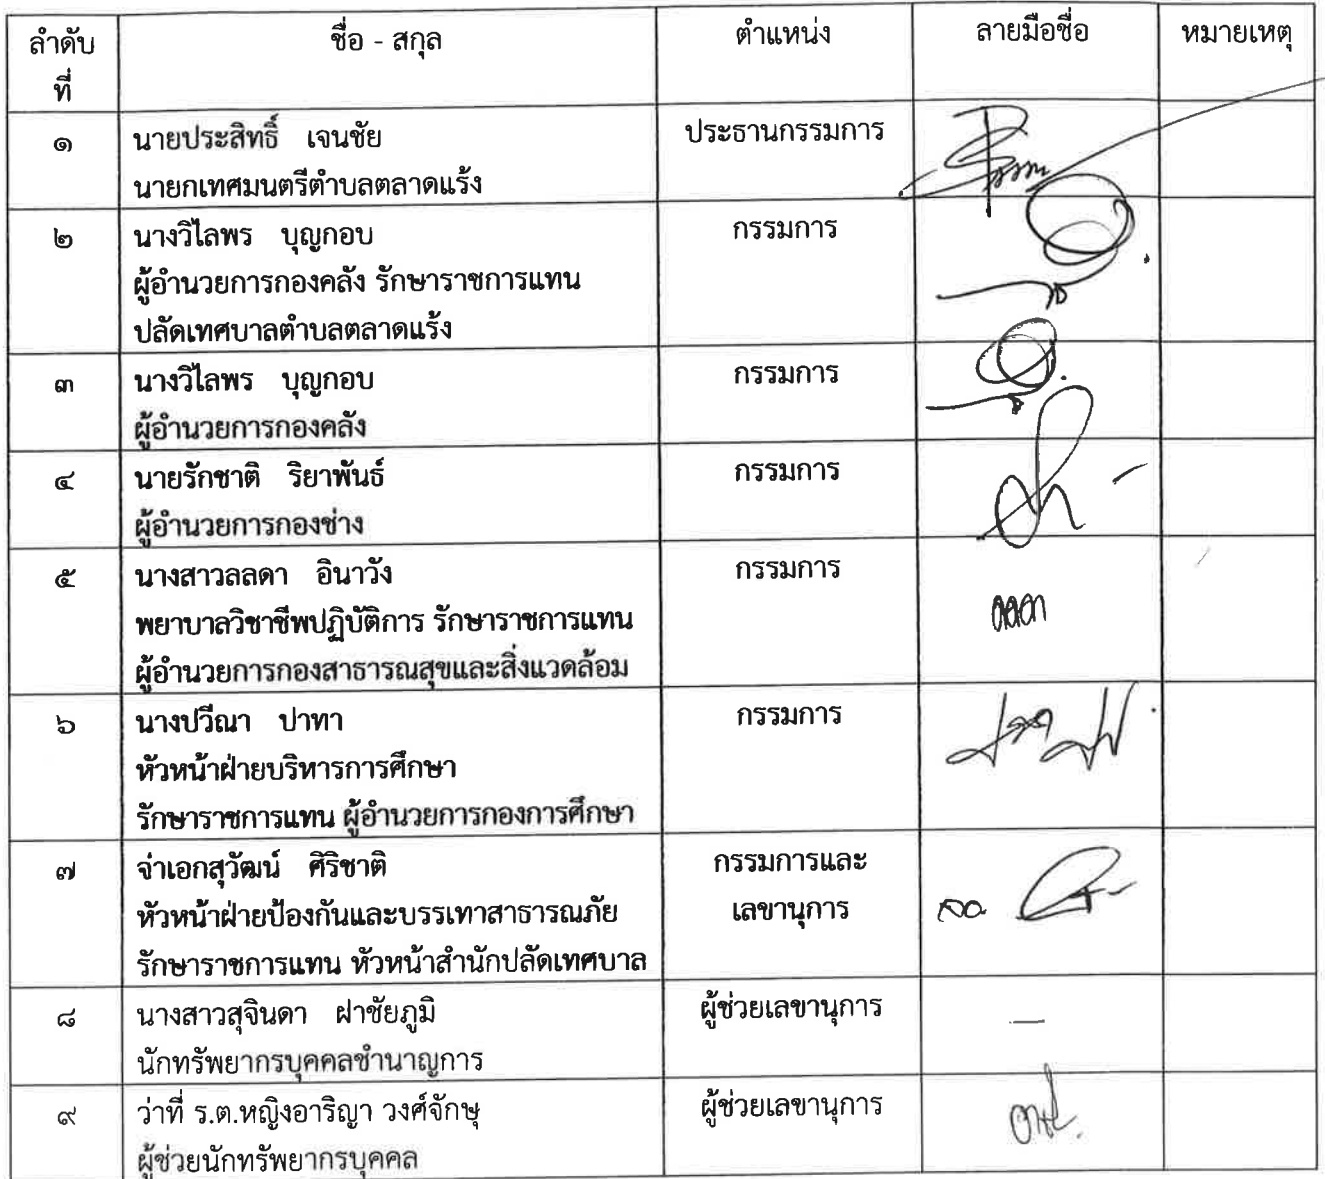 ลำดับ
ที่
ชื่อ - สกุล
ตำแหน่ง
ลายมือชื่อ
หมายเหตุ
๑
นายประสิทธิ์ เจนชัย
นายกเทศมนตรีตำบลตลาดแร้ง
ประธานกรรมการ
๒
นางวิไลพร บุญกอบ
ผู้อำนวยการกองคลัง รักษาราชการแทน
ปลัดเทศบาลตำบลตลาดแร้ง
กรรมการ
๓
นางวิไลพร บุญกอบ
ผู้อำนวยการกองคลัง
กรรมการ
๔
นายรักชาติ ริยาพันธ์
ผู้อำนวยการกองช่าง
กรรมการ
๕
นางสาวลลดา อินาวัง
พยาบาลวิชาชีพปฏิบัติการ รักษาราชการแทน
ผู้อำนวยการกองสาธารณสุขและสิ่งแวดล้อม
กรรมการ
ลลดา
๖
นางปวีณา ปาทา
หัวหน้าฝ่ายบริหารการศึกษา
รักษาราชการแทน ผู้อำนวยการกองการศึกษา
กรรมการ
๗
จ่าเอกสุวัฒน์ ศิริชาติ
หัวหน้าฝ่ายป้องกันและบรรเทาสาธารณภัย
รักษาราชการแทน หัวหน้าสำนักปลัดเทศบาล
กรรมการและ
เลขานุการ
๘
นางสาวสุจินดา ฝาชัยภูมิ
นักทรัพยากรบุคคลชำนาญการ
ผู้ช่วยเลขานุการ
—
๙
ว่าที่ ร.ต.หญิงอาริญา วงศ์จักษุ
ผู้ช่วยนักทรัพยากรบุคคล
ผู้ช่วยเลขานุการ